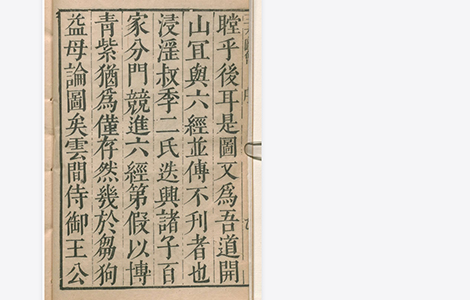 瞠乎後耳是圖又為吾道開
山冝與六經並傳不刊者也
浸滛叔季二氏迭興諸子百
家分門競進六經第假以博
青紫猶為僅存然幾於芻狗
益母論圖矣雲間侍御王公